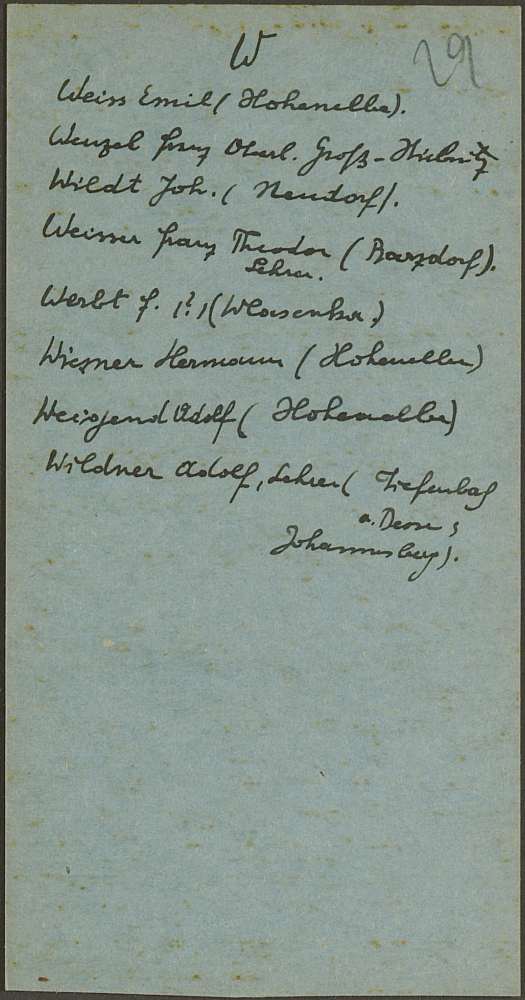 W
29
Weiss Emil (Hohenelbe).
Wenzel Franz Oberl. Groß-
Wildt Joh. (Neudorf).
Weisser Franz Theodor (Barzdorf).
Lehrer.
Werbt F. (?) (
Wiesner Hermann (Hohenelbe)
Adolf (Hohenelbe)
Wildner Adolf, Lehrer (Tiefenbach
a. Desse;
Johannesberg).